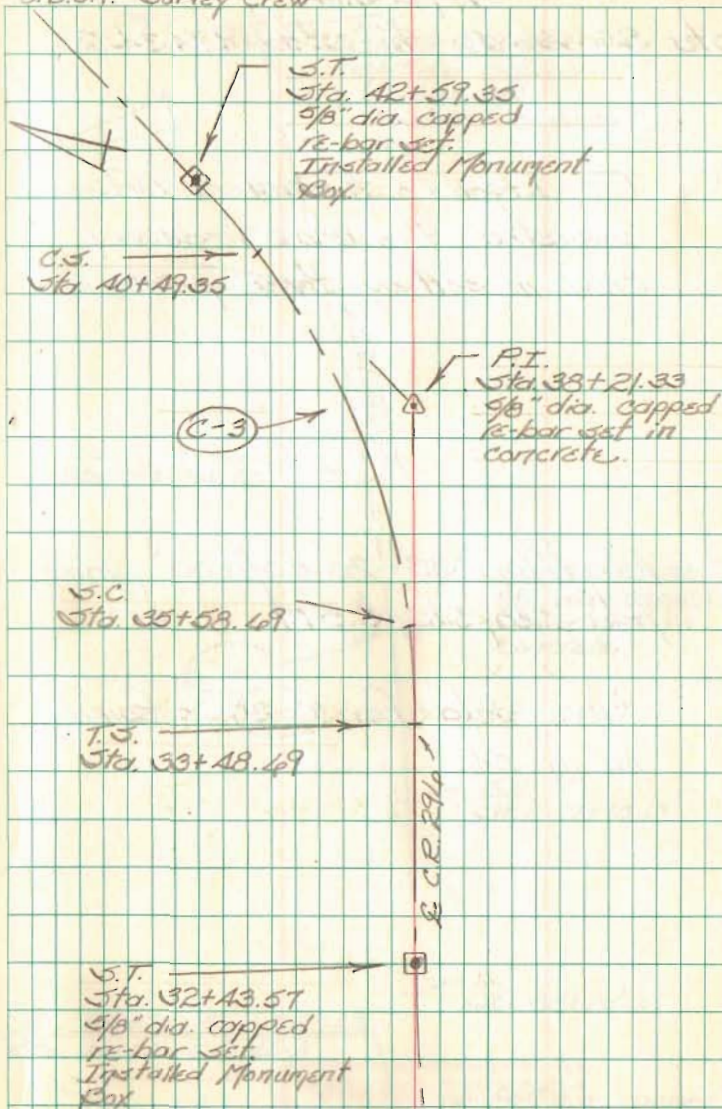 Survey Crew
S.T.
Sta. 42+59.35
5/8" dia. capped
re-bar set.
Installed Monument
Box.
C.S.
Sta. 40+49.35
P.I.
Sta. 38+21.33
5/8" dia. capped
re-bar set in
concrete.
C-3
S.C.
Sta. 35+58.69
T.S.
Sta. 33+48.69
℄ C.R. 296
S.T.
Sta. 32+43.57
5/8" dia. capped
re-bar set.
Installed Monument
Box